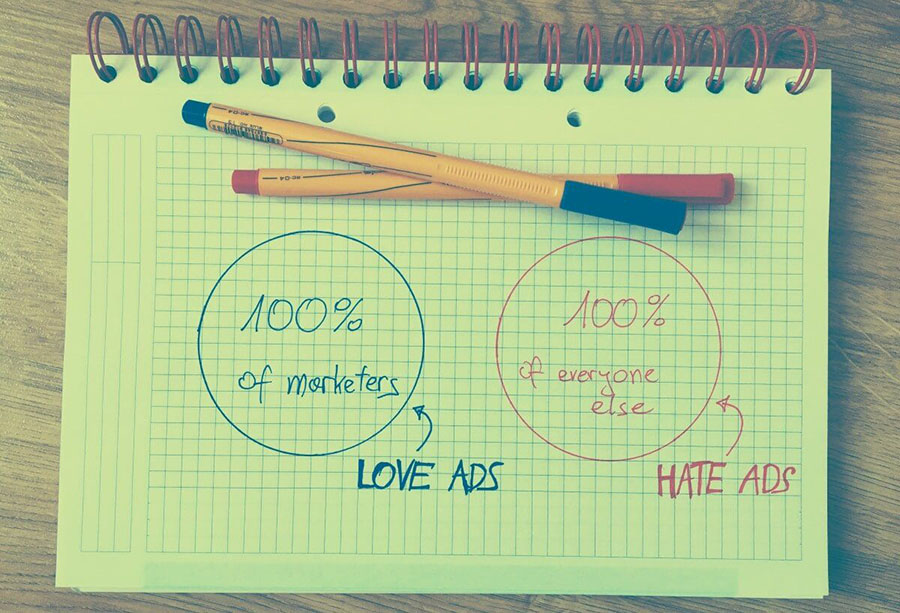 RC-04
RC-04
100%
of marketers
LOVE ADS
100%
of everyone
else
HATE ADS